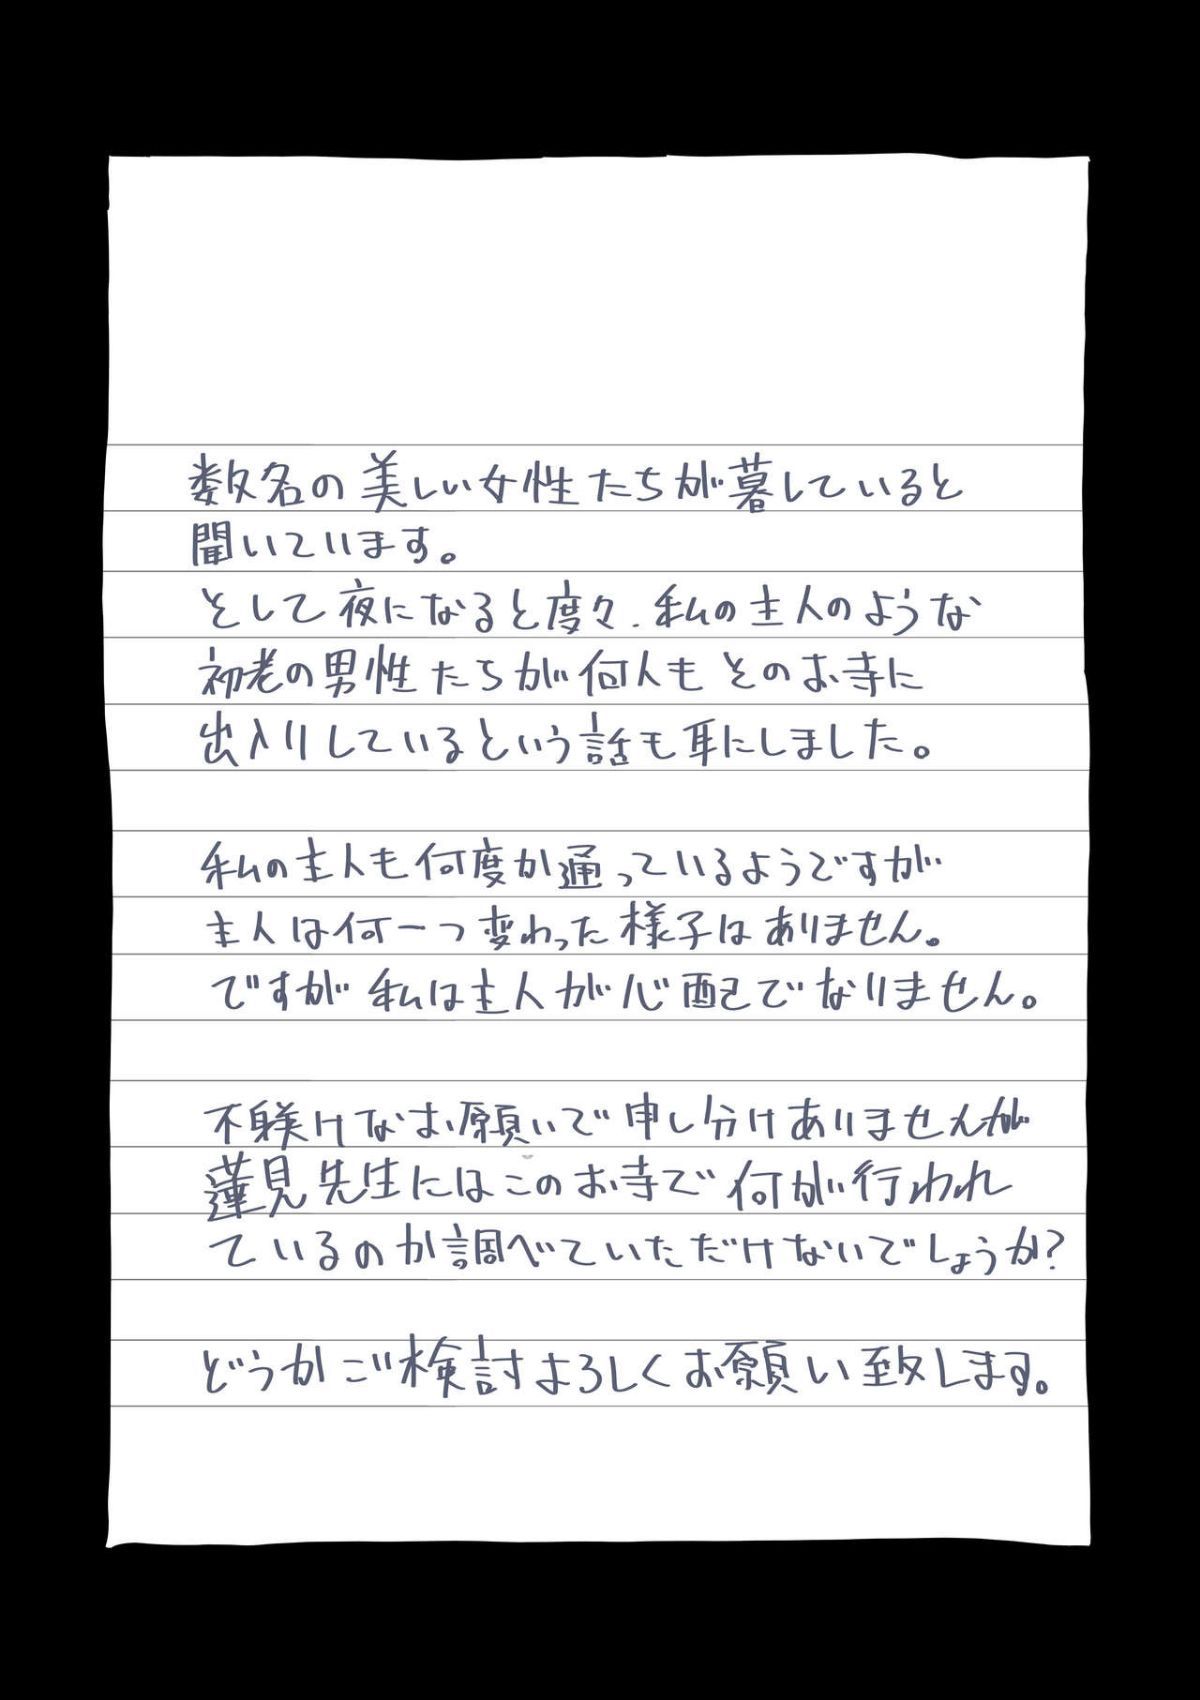 数名の美しい女性たちが暮しているると
聞いています。
そして夜になると度々、私の主人のような
初老の男性たちが何人もそのお寺に
出入りしているという話も耳にしました。
私の主人も何度か通っているようですが
主人は何一つ変わった様子はありません。
ですが私は主人が心配でなりません。
不躾けなお願いで申し分けありませんが
蓮見先生にはこのお寺で何が行われ
ているのか調べていただけないでしょうか?
どうかご検討よろしくお願い致します。